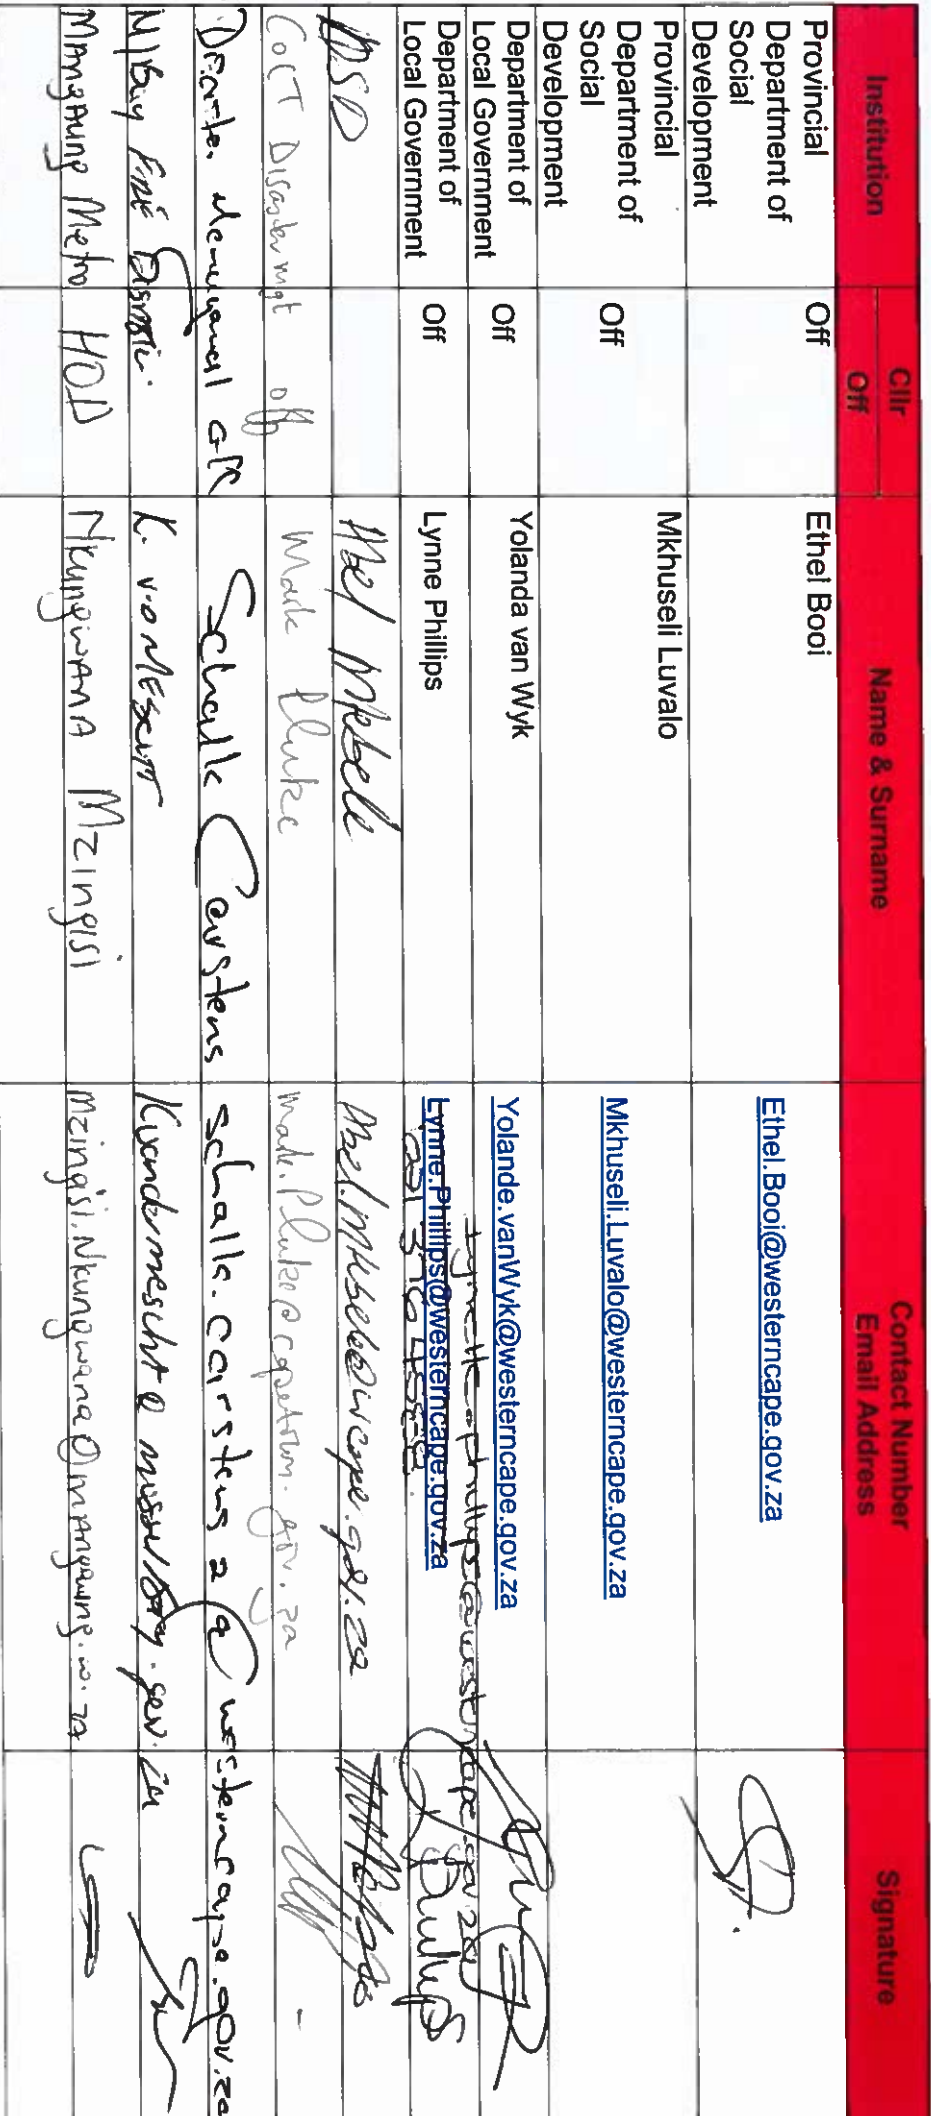 Institution Cllr Off Name & Surname Contact Number Email Address Signature
Provincial Department of Social Development Off Ethel Booi Ethel.Booi@westerncape.gov.za
Provincial Department of Social Development Off Mkhuseli Luvalo Mkhuseli.Luvalo@westerncape.gov.za
Department of Local Government Off Yolanda van Wyk Yolande.vanWyk@westerncape.gov.za
Department of Local Government Off Lynne Phillips Lynne.Phillips@westerncape.gov.za
DSD Abel Mkbele
CoCT Disaster mgt off Mark Pluke mark.Pluke@capetown.gov.za
Schalk Carstens schalk.carstens2@westerncape.gov.za
N/Bay Fire
Mangaung Metro HOD Nkungwana Mzingisi mzingisi.Nkungwana@mangaung.co.za